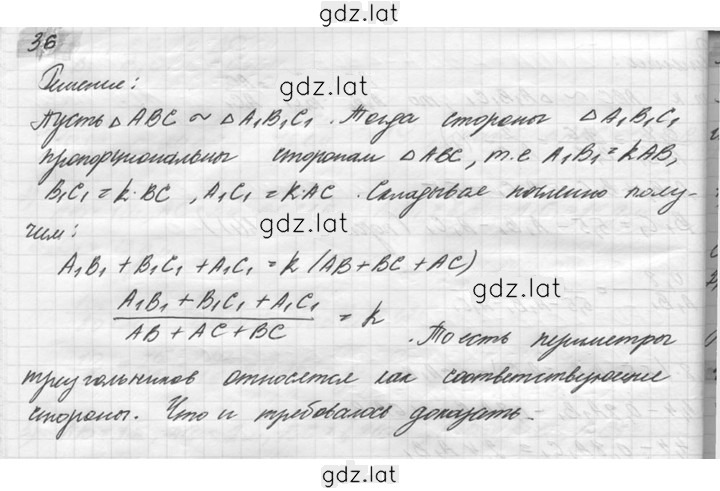 gdz.lat
36
Решение:
gdz.lat
Пусть △ ABC ~ △ A₁B₁C₁. Тогда стороны △ A₁B₁C₁
пропорциональны сторонам △ ABC, т.е A₁B₁ = kAB,
B₁C₁ = k·BC, A₁C₁ = K·AC. Складывае почленно полу-
чим:
gdz.lat
A₁B₁ + B₁C₁ + A₁C₁ = k (AB+BC+AC)
gdz.lat
A₁B₁ + B₁C₁ + A₁C₁
AB + AC + BC = k
. То есть периметры
треугольников относятся как соответствующие
стороны. Что и требовалось доказать.
gdz.lat